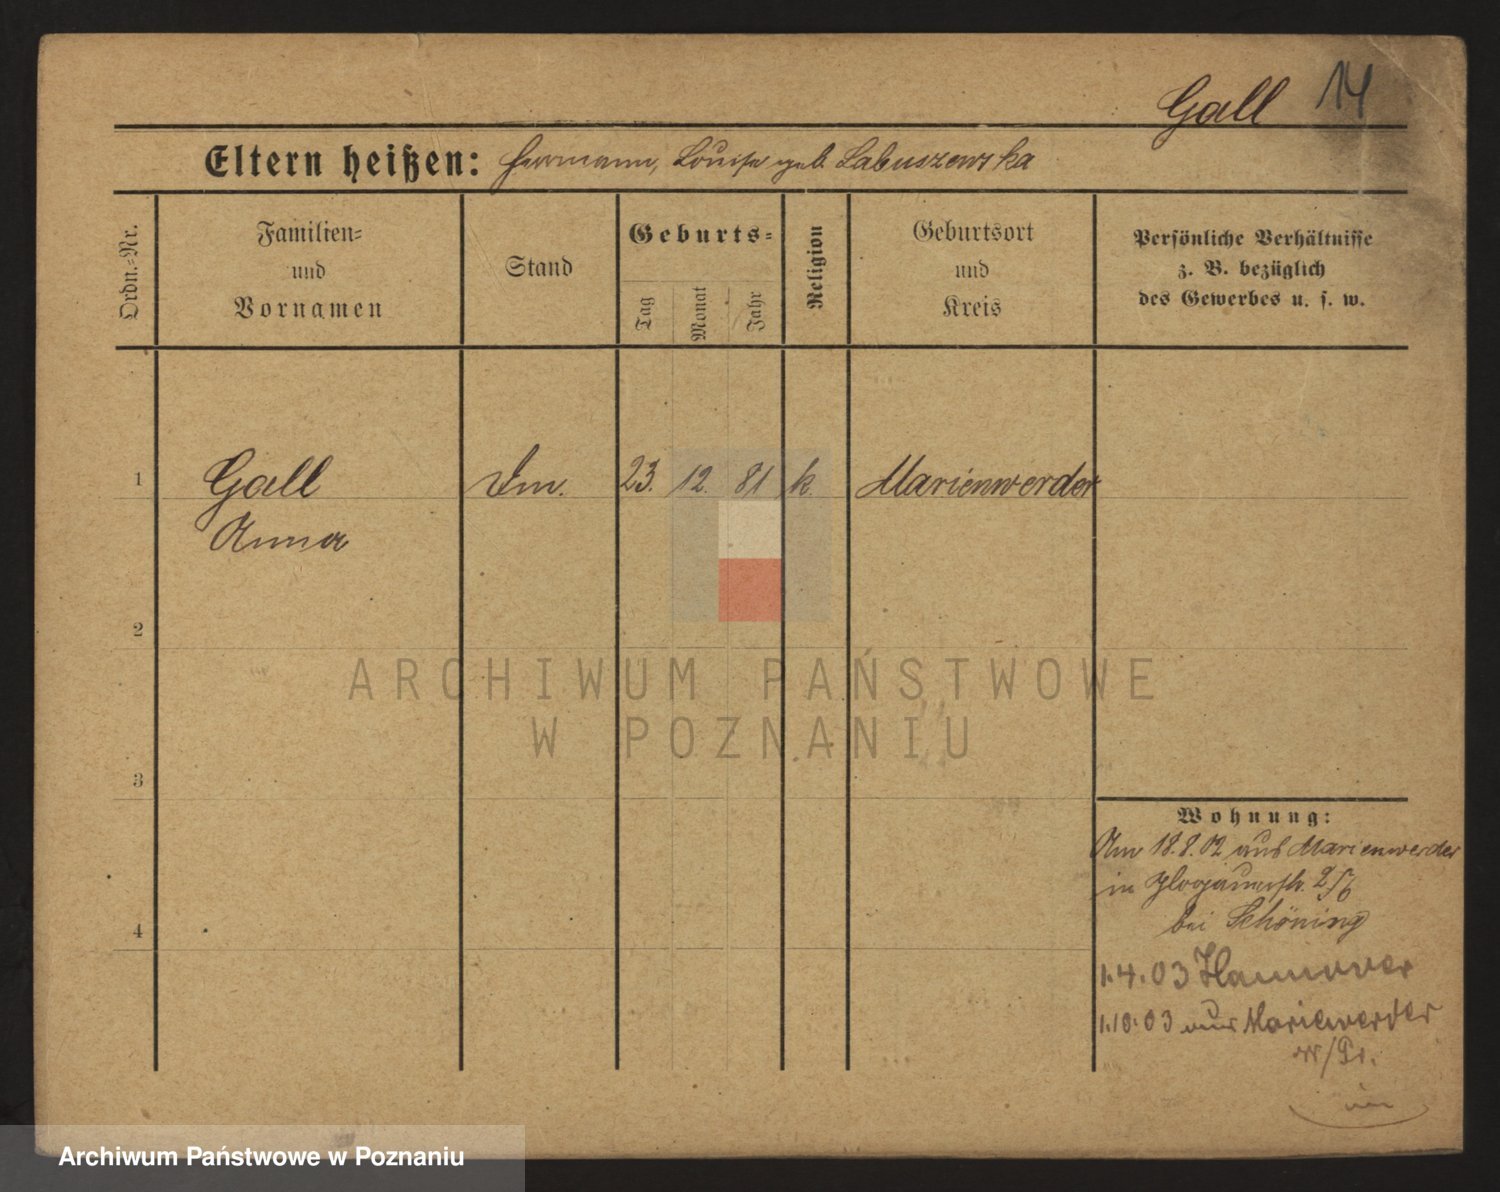 Gall 14
Eltern heißen: Hermann, Louise geb. Labuszewska
Ordn.=Nr.
Familien=
und
Vornamen
Stand
Geburts=
Tag
Monat
Jahr
Religion
Geburtsort
und
Kreis
Persönliche Verhältnisse
z. B. bezüglich
des Gewerbes u. s. w.
1 Gall 23. 12. 81 k. Marienwerder
Anna
2
3
4
Wohnung:
Am 18.8.02 aus Marienwerder
in Glogauerstr.
bei Schöning
1.4.03 Hannover
1.10.03 aus Marienwerder
W/Pr.
ARCHIWUM PAŃSTWOWE
W POZNANIU
Archiwum Państwowe w Poznaniu